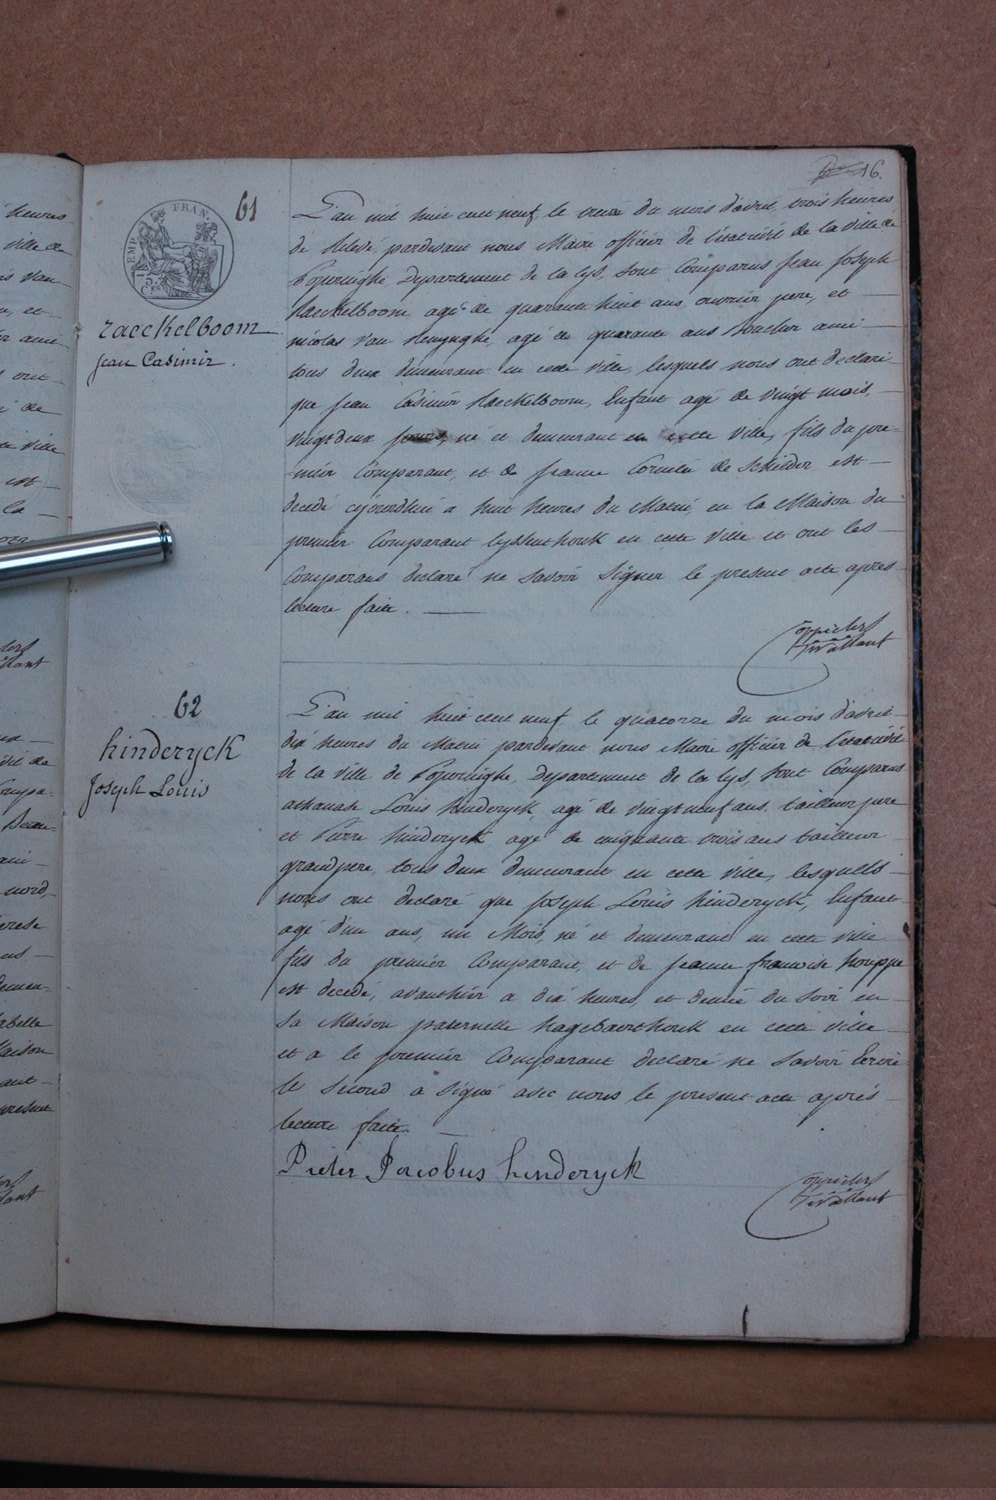 16.
EMP. FRAN.
61
raeckelboom
jean Casimir.
L'an mil huit cent neuf le treize du mois d'avril, trois heures
de relevé pardevant nous Maire officier de l'etat civil de la ville de
Poperinghe Departement de la lys, sont Comparus Jean Joseph
Raeckelboom agé de quarante huit ans, ouvrier pere, et
nicolas Van agé de quarante ans ami
tous deux demeurant en cette ville, lesquels nous ont declaré
que Jean Casimir Raeckelboom, Enfant agé de vingt mois,
vingt deux jours, né et demeurant en cette ville, fils du pre-
mier Comparant, et de Jeanne Cornelie de Schilder est
decedé cejourdhui a huit heures du Matin, en la Maison du
premier Comparant en cette ville et ont les
Comparans declaré ne savoir signer le present acte apres
lecture faite.
62
hinderyck
Joseph Louis
L'an mil huit cent neuf le quatorze du mois d'avril
dix heures du Matin pardevant nous Maire officier de l'etat civil
de la ville de Poperinghe, Departement de la lys, sont Comparus
athanase Louis hinderyck, agé de vingt neuf ans, tailleur pere
et Pierre hinderyck, agé de cinquante trois ans tailleur
grand pere, tous deux demeurant en cette ville, lesquels
nous ont declaré que Joseph Louis hinderyck, Enfant
agé d'un ans, un Mois, né et demeurant en cette ville
fils du premier Comparant, et de jeanne francoise houppe
est decedé, avanthier a dix heures et demie du soir en
sa Maison paternelle en cette ville
et a le premier Comparant declaré ne savoir Ecrire
le second a signé avec nous le present acte après
lecture faite.
Pieter Jacobus hinderyck